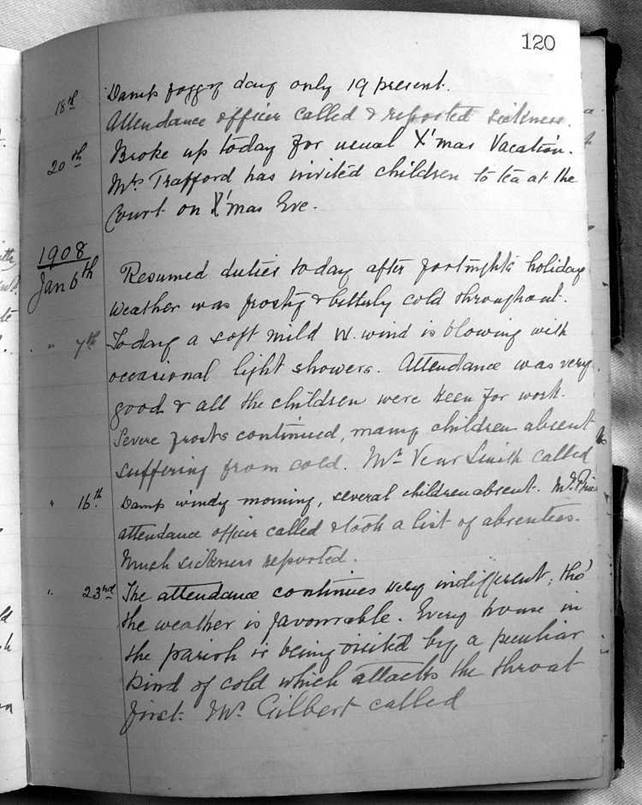 120
18th Damp foggy day only 19 present.
Attendance officer called & reported sickness.
20th Broke up today for usual X'mas Vacation.
Mrs Trafford has invited children to tea at the
Court on X'mas Eve.
1908
Jan 6th Resumed duties today after fortnights holiday
weather was frosty & bitterly cold throughout.
" " 7th Today a soft mild W. wind is blowing with
occasional light showers. Attendance was very
good & all the children were keen for work.
Severe frosts continued, many children absent
suffering from cold. Mr Smith called
" 16th Damp windy morning, several children absent. Mr
attendance officer called & took a list of absentees.
Much sickness reported.
" 23rd The attendance continues very indifferent, tho'
the weather is favourable. Every house in
the parish is being visited by a peculiar
kind of cold which attacks the throat
first. Mr Gilbert called